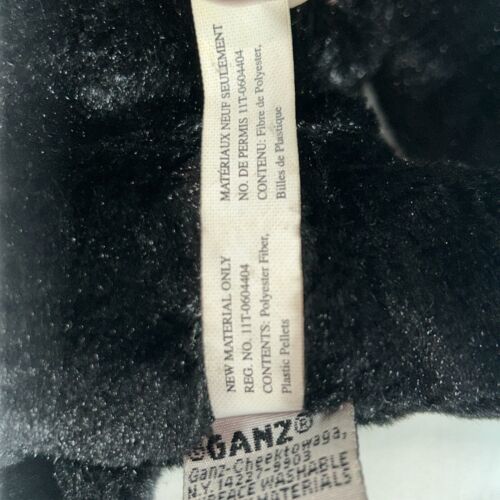 MATÉRIAUX NEUF SEULEMENT
NO. DE PERMIS 11T-0604404
CONTENU: Fibre de Polyester,
Billes de Plastique
NEW MATERIAL ONLY
REG. NO. 11T-0604404
CONTENTS: Polyester Fiber,
Plastic Pellets
GANZ®
Ganz-Cheektowaga,
WASHABLE
MATERIALS